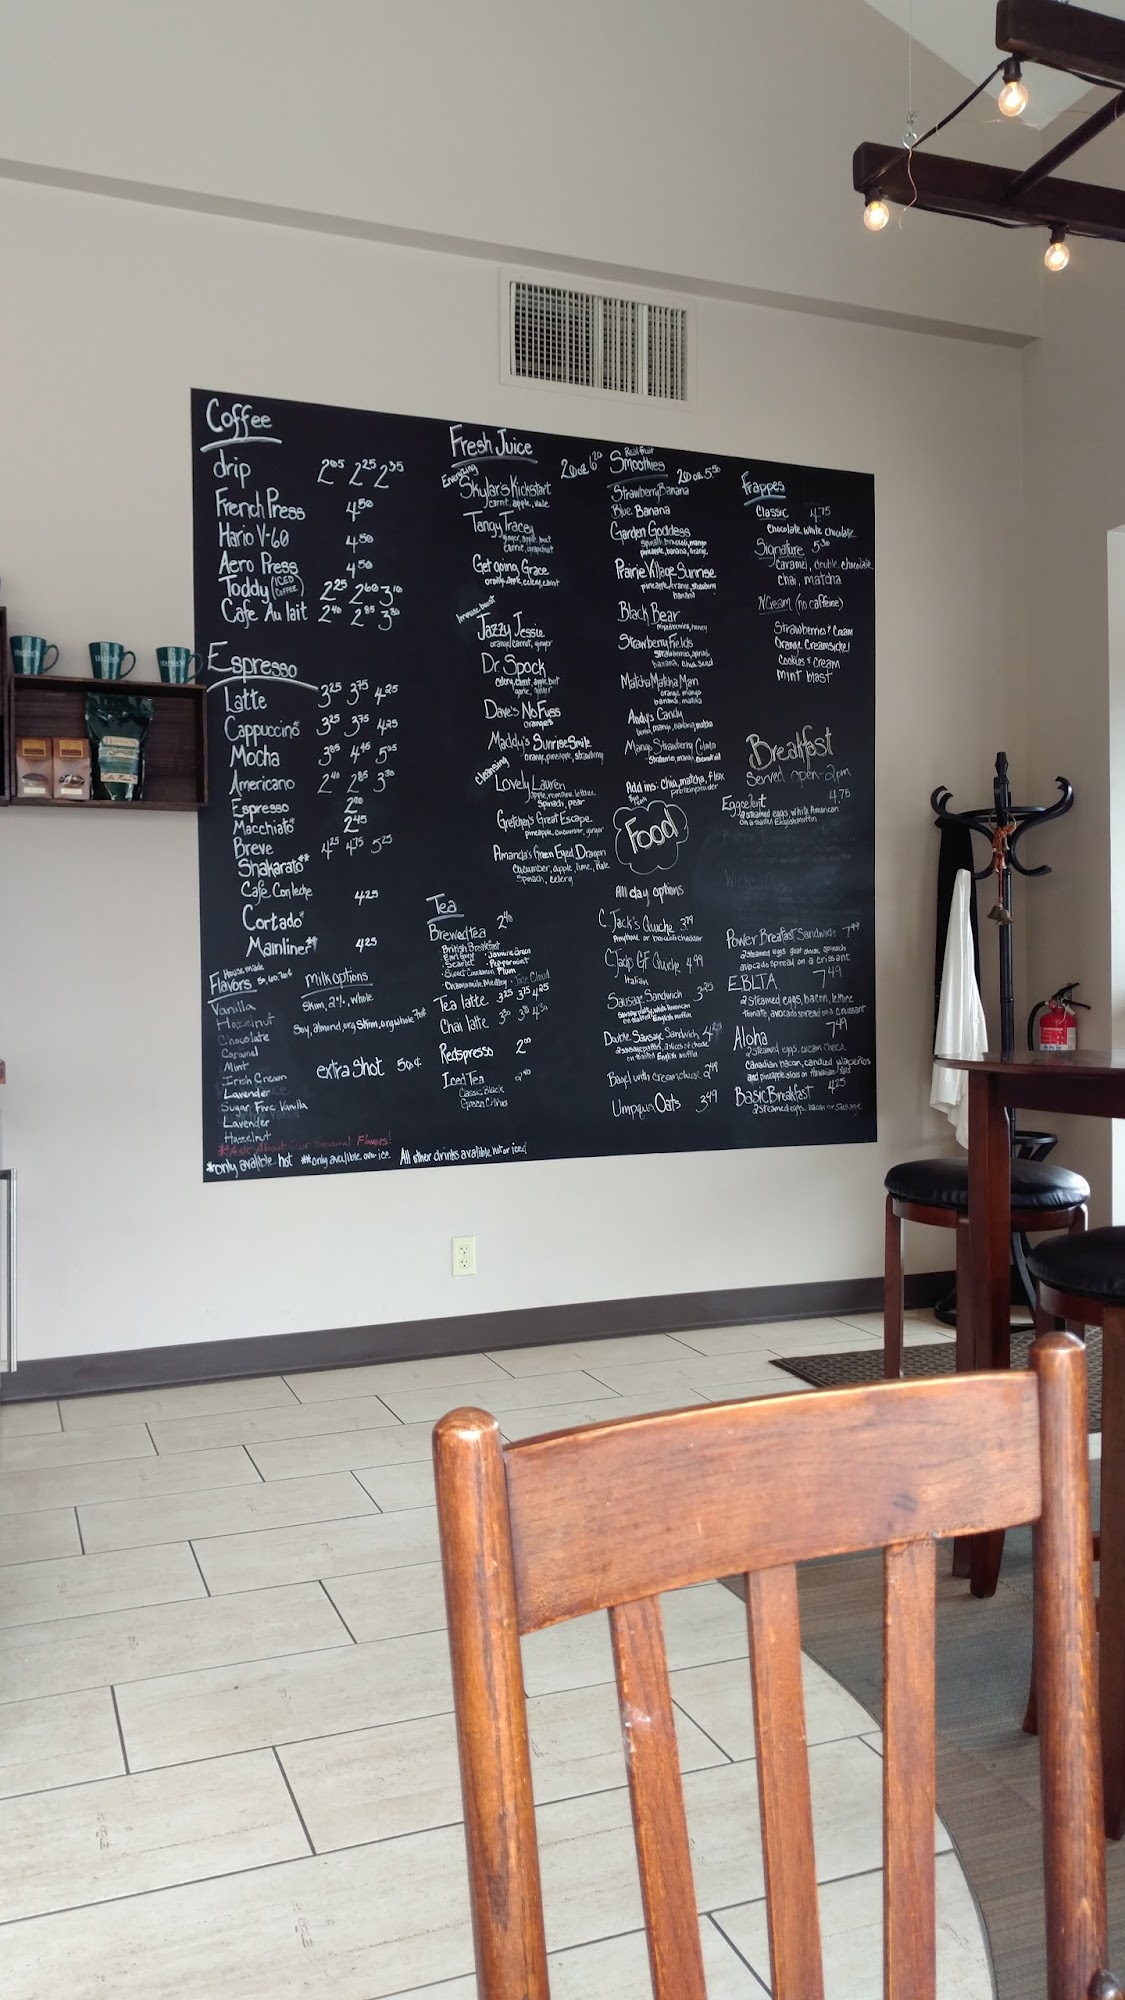 Coffee
drip 2.05 2.25 2.35
French Press 4.50
Hario V-60 4.50
Aero Press 4.50
Toddy (ICED COFFEE) 2.25 2.60 3.10
Cafe Au lait 2.40 2.85 3.30
Espresso
Latte 3.25 3.75 4.25
Cappuccino* 3.25 3.75 4.25
Mocha 3.85 4.45 5.05
Americano 2.40 2.85 3.30
Espresso 2.00
Macchiato* 2.45
Breve 4.25 4.75 5.25
Shakarato**
Cafe Con leche 4.25
Cortado*
Mainliner** 4.25
House made
Flavors
Vanilla
Hazelnut
Chocolate
Caramel
Mint
Irish Cream
Lavender
Sugar Free Vanilla
Lavender
Hazelnut
Milk options
Skim, 2%, whole
Soy, almond, org skim, org whole
extra shot 50¢
*Ask About Our Seasonal Flavors!
*only avalible hot **only avalible over ice All other drinks avalible hot or iced
Fresh Juice 20oz 6.20
Energizing
Skylar's Kickstart
carrot, apple, kale
Tangy Tracey
ginger, apple, beet
carrot, grapefruit
Get going Grace
orange, apple, celery, carrot
Immune boost
Jazzy Jessie
orange, carrot, ginger
Dr. Spock
Celery, carrot, apple, beet
garlic, ginger
Dave's No Fuss
oranges
Maddy's Sunrise Smile
orange, pineapple, strawberry
cleansing
Lovely Lauren
apple, romaine lettuce
Spinach, pear
Gretchen's Great Escape
pineapple, cucumber, ginger
Amanda's Green Eyed Dragon
Cucumber, apple, lime, Kale
Spinach, celery
Tea
Brewed tea 2.40
British Breakfast
Earl Grey · Jasmine Green
Scarlet · Peppermint
Sweet Cinnamon Plum
Chamomile Medley · Jade Cloud
Tea latte 3.25 3.75 4.25
Chai latte
Redspresso 2.00
Iced Tea 2.40
Classic Black
Green Citrus
Real fruit
Smoothies 20oz 5.50
Strawberry Banana
Blue Banana
Garden Goddess
spinach, broccoli, mango
pineapple, banana, orange
Prairie Village Sunrise
pineapple, orange, strawberry
banana
Black Bear
mixed berries, honey
Strawberry Fields
strawberries, spinach
banana, chia seed
Matcha Matcha Man
orange, mango
banana, matcha
Andy's Candy
Mango Strawberry Colada
Add ins: chia, matcha, flax
protein powder
Food
All day options
C. Jack's Quiche 3.79
C. Jack's GF Quiche 4.99
Italian
Sausage Sandwich 3.25
Double Sausage Sandwich 4.49
2 sausage patties, 2 slices of cheese
on toasted English muffin
Bagel with cream cheese 2.49
Umpqua Oats 3.49
Frappes
Classic 4.75
Chocolate, white chocolate
Signature 5.30
caramel, double chocolate
chai, matcha
N' Cream (no caffeine)
Strawberries & Cream
Orange Creamsickel
Cookies & Cream
mint blast
Breakfast
Served open-2pm
Eggcelent 4.75
2 steamed eggs, white American
on a toasted English muffin
Power Breafast Sandwich 7.99
2 steamed eggs, goat cheese, spinach
avocado spread on a crissant
EBLTA 7.49
2 steamed eggs, bacon, lettuce
tomato, avocado spread on a croissant
Aloha 7.49
2 steamed eggs, cream cheese
Canadian bacon, candied jalapeños
and pineapple slices on
Basic Breakfast 4.25
2 steamed eggs, bacon or sausage